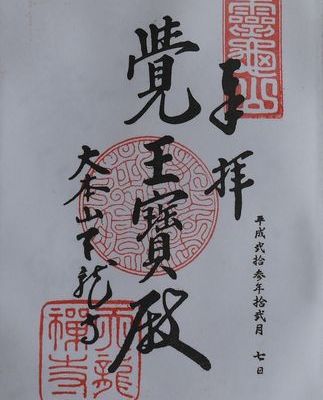 靈龜山
奉拝
平成弐拾参年拾弐月 七日
覺王寶殿
大本山天龍寺
天龍禪寺